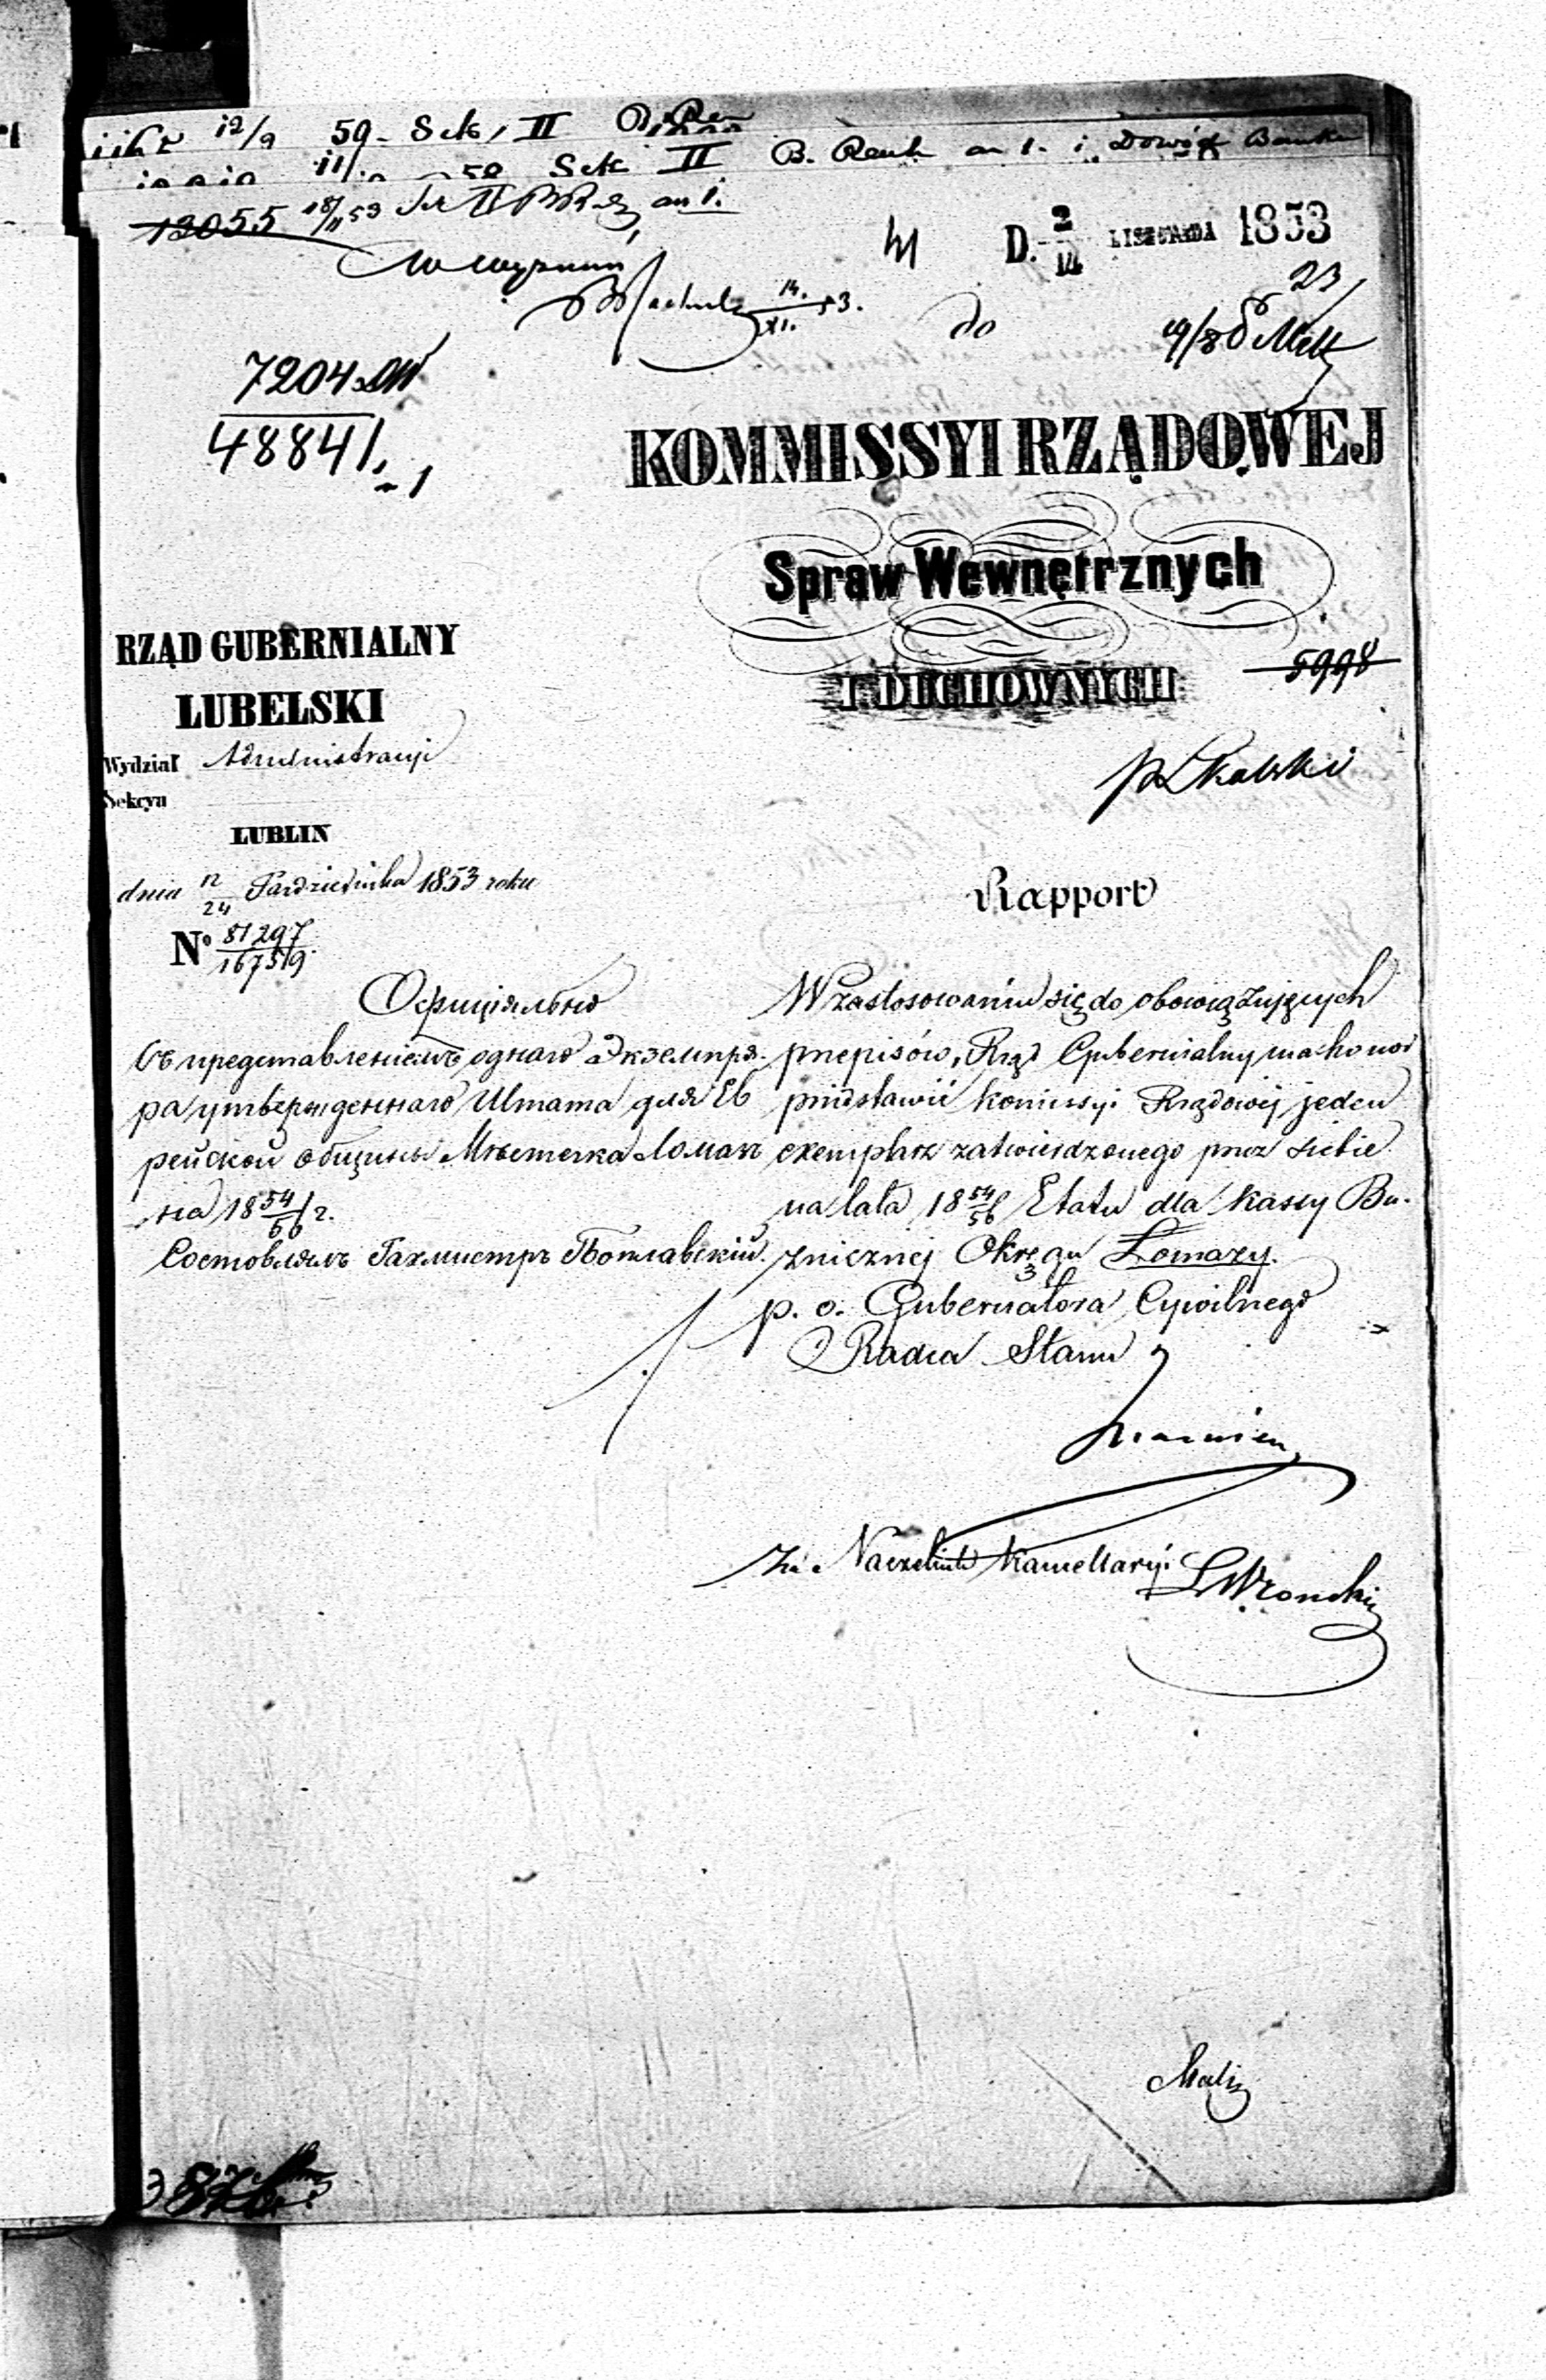 12/9 59 - Sek, II
11/10 58 Sek II B. Rent an 1. i Dowód Banku
13055 18/11 53 II an 1.
D. 2/14 LISTOPADA 1853
14/XI. 53.
23
do
7204
48841
KOMMISSYI RZĄDOWEJ
Spraw Wewnętrznych
I DUCHOWNYCH
5998
RZĄD GUBERNIALNY
LUBELSKI
Wydział Administracyi
Sekcya
LUBLIN
dnia 12/24 Października 1853 roku
Rapport
No 81297/167519.
Офиціяльно
Съ представленіемъ однаго Экземпля-
ра утвержденнаго Штата для Ев
рейской общины Мѣстечка Ломазъ
на 18 54/56 г.
Составлялъ
W zastosowaniu się do obowiązujących
przepisów, Rząd Gubernialny ma honor
przedstawić Komissyi Rządowej jeden
exemplarz zatwierdzonego przez siebie
na lata 18 54/56 Etatu dla Kassy Bó-
żnicznej Okręgu Łomazy.
p. o. Gubernatora Cywilnego
Radca Stanu
za Naczelnika Kancellaryi
LWronski